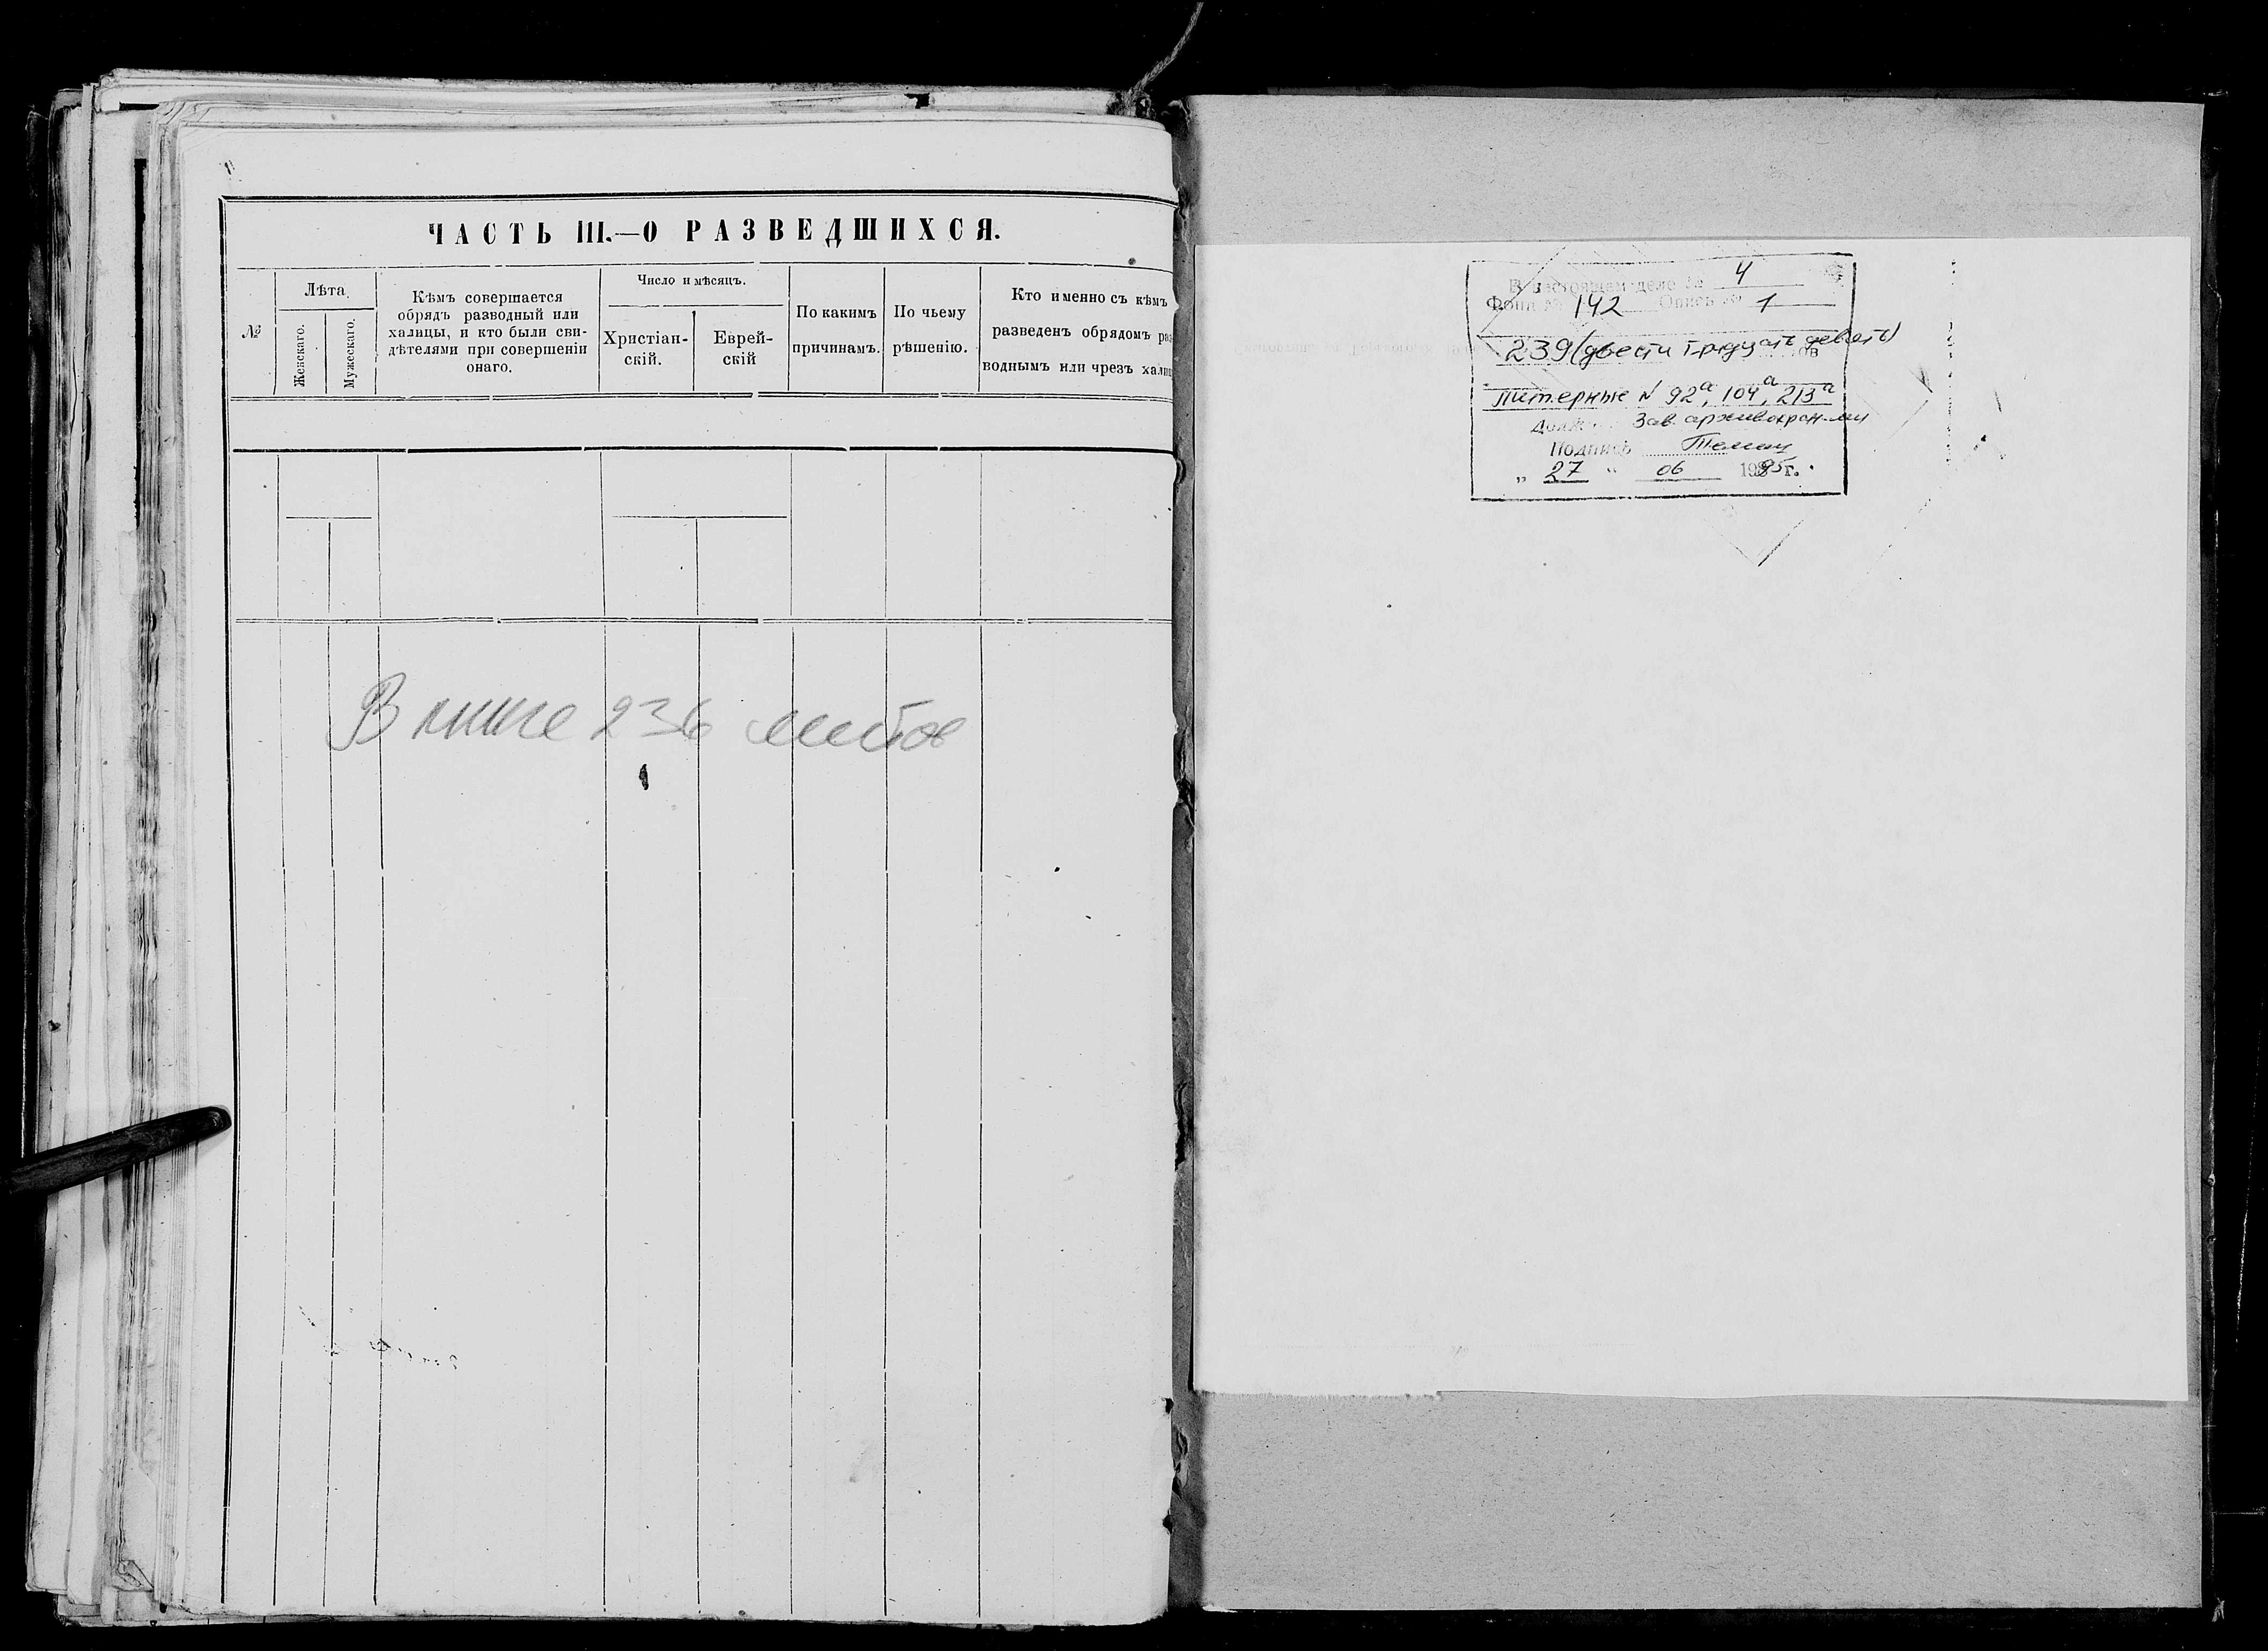 ЧАСТЬ III.—О РАЗВЕДШИХСЯ.
№
Лѣта
Женскаго.
Мужескаго.
Кѣмъ совершается
обрядъ разводный или
халицы, и кто были сви-
дѣтелями при совершеніи
онаго.
Число и мѣсяцъ.
Христіан-
скій.
Еврей-
скій
По какимъ
причинамъ.
По чьему
рѣшенію.
Кто именно съ кѣмъ
разведенъ обрядомъ раз
воднымъ или чрезъ халиц
В книге 236 листов
В настоящем дело № 4
Фонд № 142 Опись № 1
239 (двести тридцать девять)
ов
Литерные N 92а, 104а, 213а
Должн. Зав. архивохран-ми
Подпись
„ 27 “ 06 1995 г.